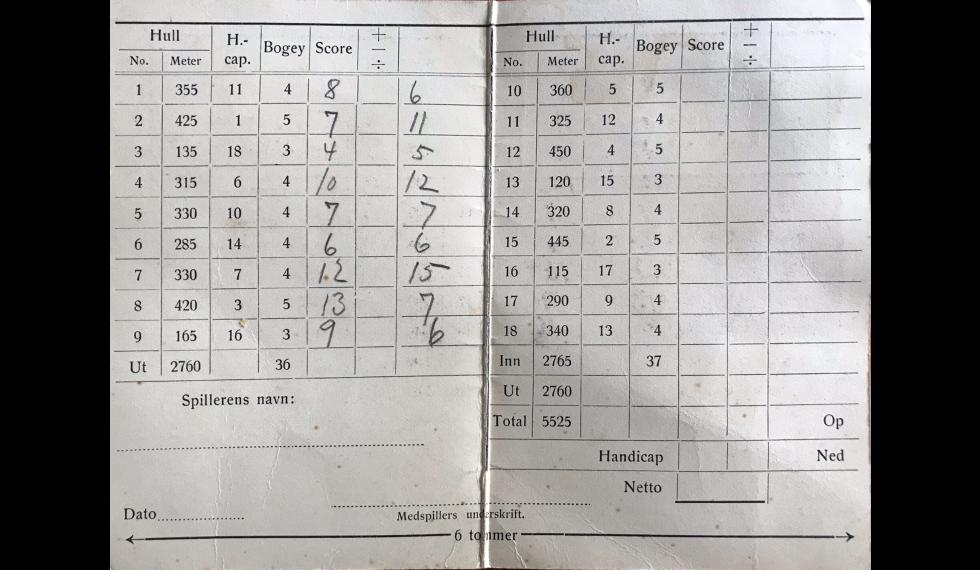 Hull H.-cap. Bogey Score + − ÷
No. Meter
1 355 11 4 8 6
2 425 1 5 7 11
3 135 18 3 4 5
4 315 6 4 10 12
5 330 10 4 7 7
6 285 14 4 6 6
7 330 7 4 12 15
8 420 3 5 13 7
9 165 16 3 9 6
Ut 2760 36
Spillerens navn:
Dato
Hull H.-cap. Bogey Score + − ÷
No. Meter
10 360 5 5
11 325 12 4
12 450 4 5
13 120 15 3
14 320 8 4
15 445 2 5
16 115 17 3
17 290 9 4
18 340 13 4
Inn 2765 37
Ut 2760
Total 5525 Op
Handicap Ned
Netto
Medspillers underskrift.
6 tommer